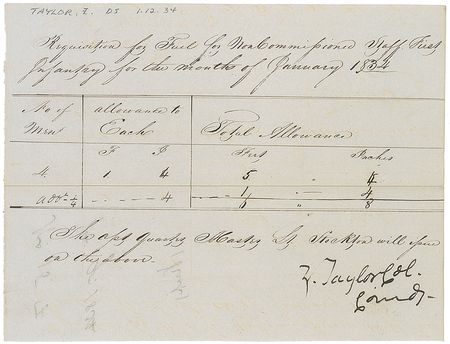 TAYLOR, Z. DS 1.12.34
Requisition for Fuel for Non Commissioned Staff First
Infantry for the month of January 1834
No of Men allowance to Each Total Allowance
F I Feet Inches
4 1 4 5 4
add 1/4 4 1 " 4
" 8
The Quarter Master Lt Stockton will issue
on the above.
Z. Taylor Col.
Comdt.